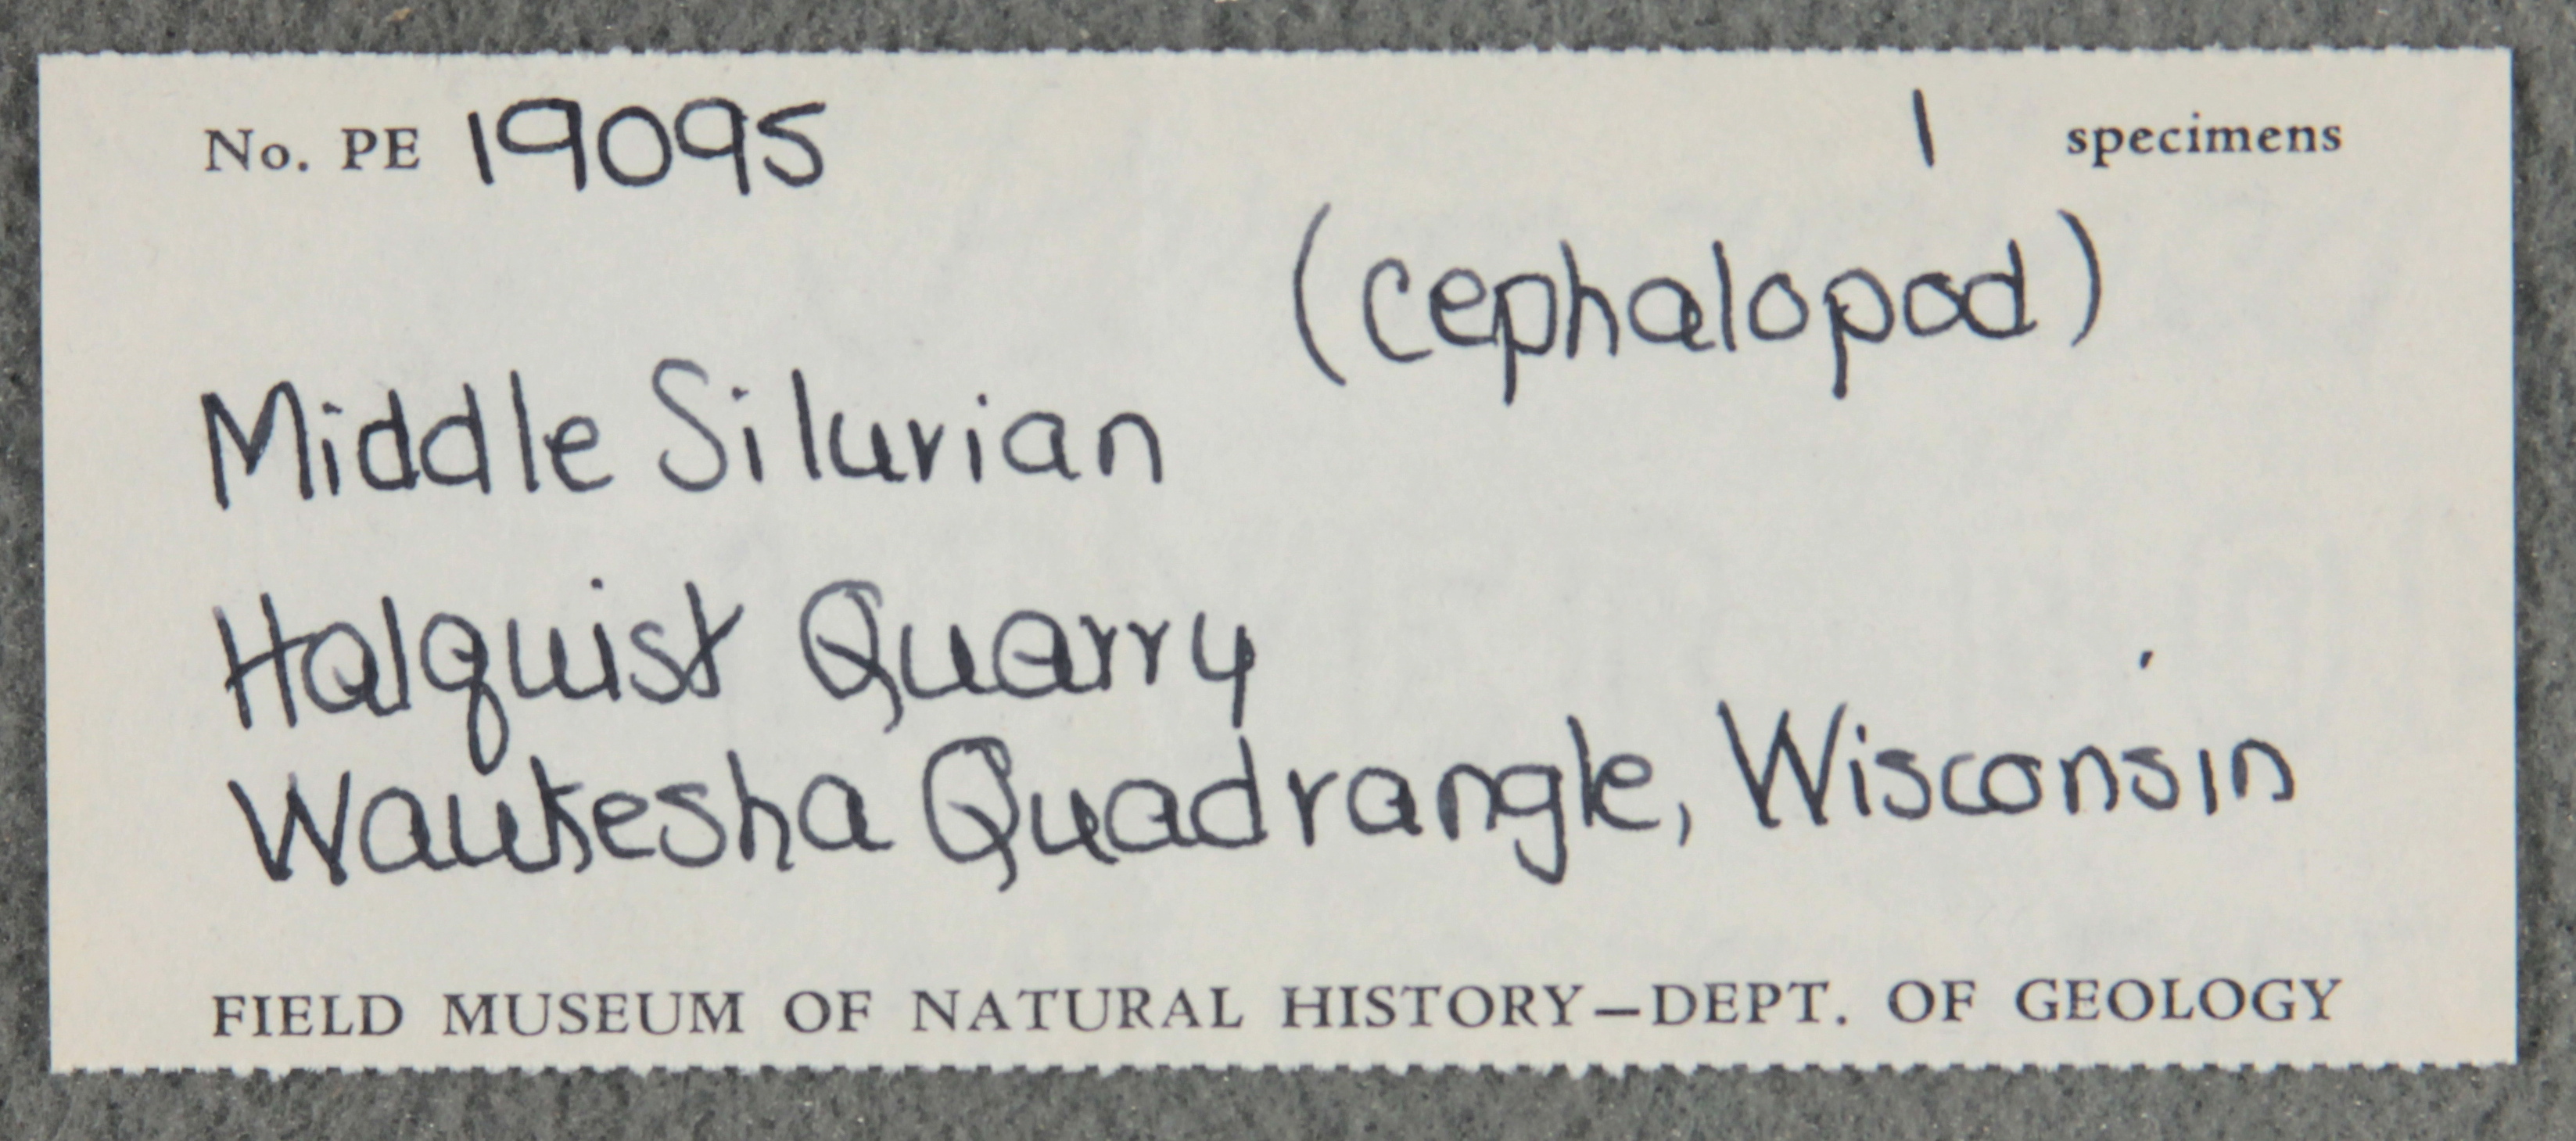 No. PE 19095 1 specimens
(cephalopod)
Middle Silurian
Halquist Quarry
Waukesha Quadrangle, Wisconsin
FIELD MUSEUM OF NATURAL HISTORY—DEPT. OF GEOLOGY